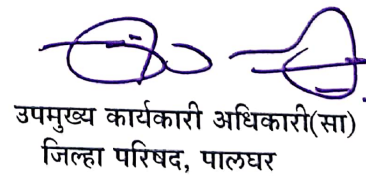 उपमुख्य कार्यकारी अधिकारी(सा)
जिल्हा परिषद, पालघर